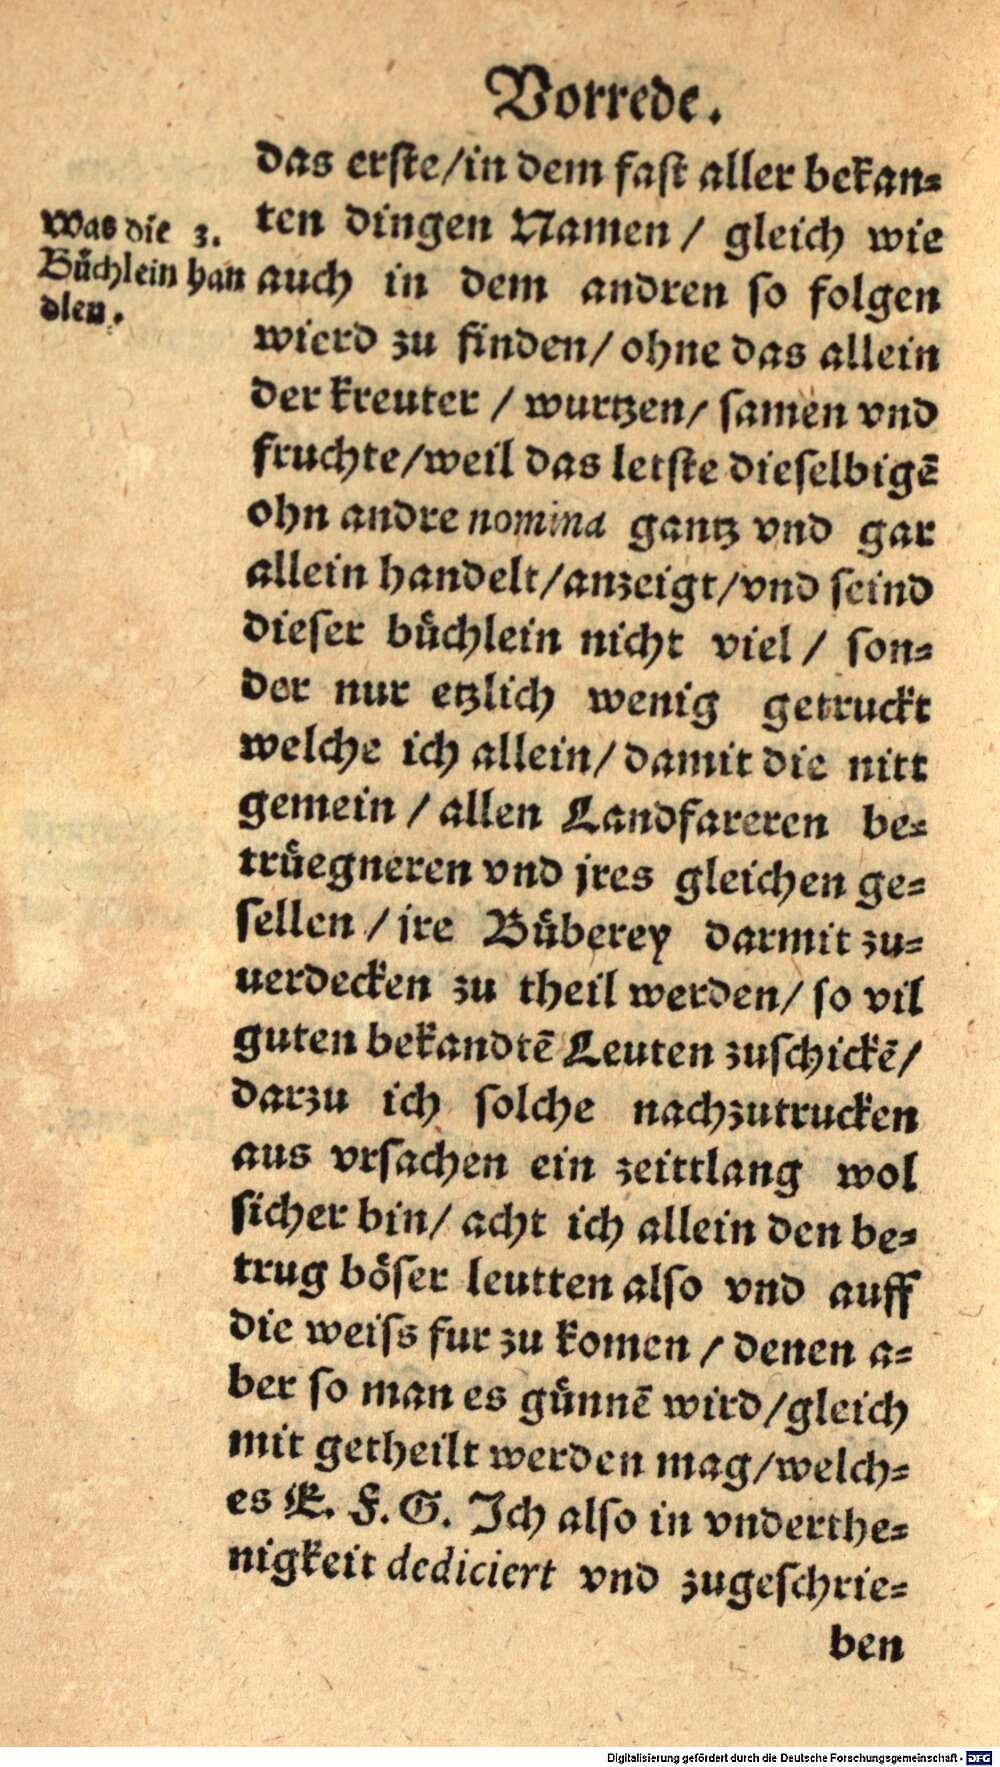 Vorrede.
das erſte/in dem faſt aller bekan⸗
ten dingen Namen / gleich wie
auch in dem andren ſo folgen
wierd zu finden/ ohne das allein
der kreuter / wurtzen/ ſamen vnd
fruchte/weil das letſte dieſelbigē
ohn andre nomina gantz vnd gar
allein handelt/anzeigt/vnd ſeind
dieſer buͤchlein nicht viel / ſon⸗
der nur etzlich wenig getruckt
welche ich allein/ damit die nitt
gemein / allen Landfareren be⸗
truͤegneren vnd jres gleichen ge⸗
ſellen / jre Buͤberey darmit zu⸗
uerdecken zu theil werden/ ſo vil
guten bekandtē Leuten zuſchickē/
darzu ich ſolche nachzutrucken
aus vrſachen ein zeittlang wol
ſicher bin/ acht ich allein den be⸗
trug boͤſer leutten alſo vnd auff
die weiſs fur zu komen / denen a⸗
ber ſo man es guͤnnē wird/gleich
mit getheilt werden mag/welch⸗
es E. F. G. Ich alſo in vnderthe⸗
nigkeit dediciert vnd zugeſchrie⸗
ben
Was die 3.
Buͤchlein han
dlen.
Digitalisierung gefördert durch die Deutsche Forschungsgemeinschaft - DFG